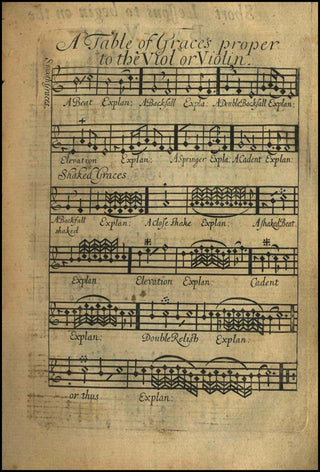 A Table of Graces proper
to the Viol or Violin.
Smooth Graces.
A Beat Explan: A Backfall Expla: A Double Backfall Explan:
Elevation Explan: A Springer Expla: A Cadent Explan:
Shaked Graces
A Backfall shaked Explan: A Close shake Explan: A shaked Beat
Explan Elevation Explan: Cadent
Explan: Double Relish Explan:
or thus Explan: